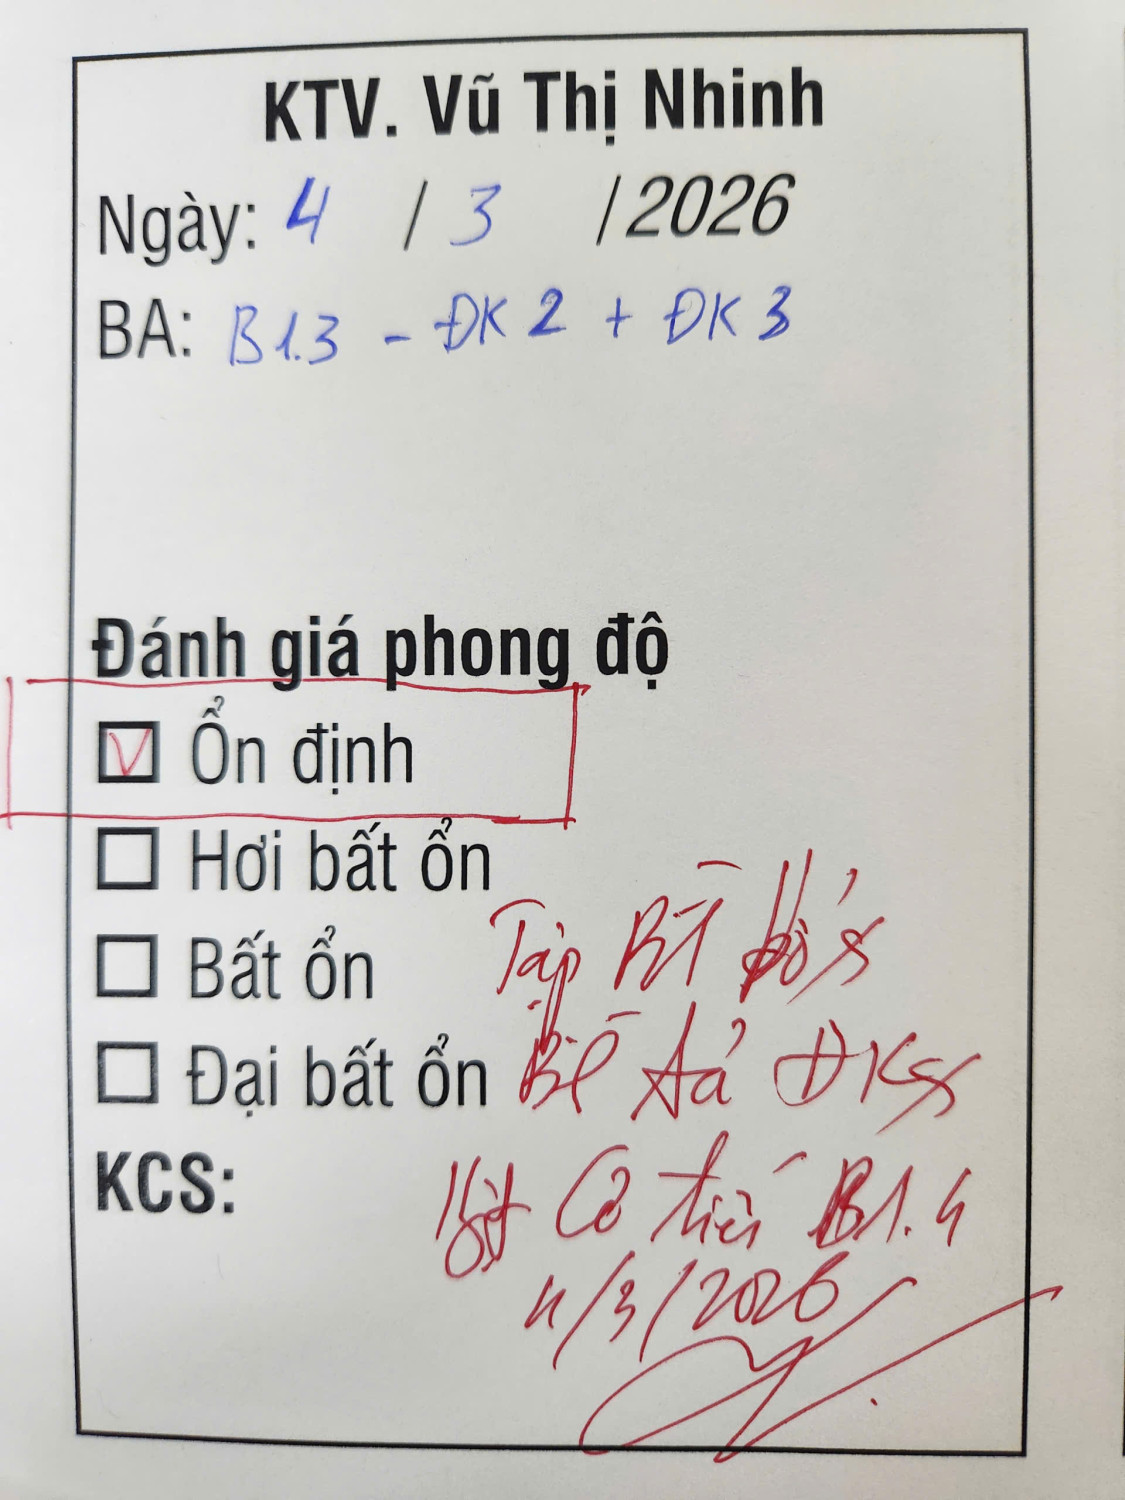 KTV. Vũ Thị Nhinh
Ngày: 4 / 3 / 2026
BA: B1.3 - ĐK 2 + ĐK 3
Đánh giá phong độ
V Ổn định
Hơi bất ổn
Bất ổn
Đại bất ổn
KCS:
Tập
ĐK
Cô B1.4
4/3/2026